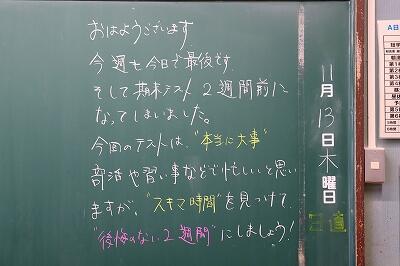 おはようございます
今週も今日で最後です
そして期末テスト2週間前に
なってしまいました。
今回のテストは、"本当に大事"
部活や習い事などで忙しいと思い
ますが、"スキマ時間"を見つけて、
"後悔のない2週間"にしましょう!
11月13日木曜日
日直
A日